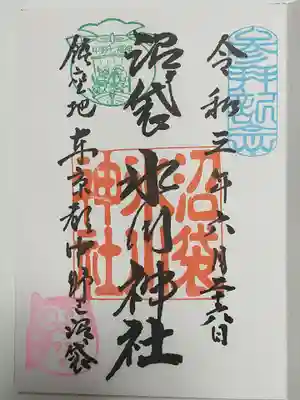 参拝記念
令和三年六月二十八日
沼袋 氷川神社
沼袋
氷川
神社
鎮座地 東京都中野区沼袋